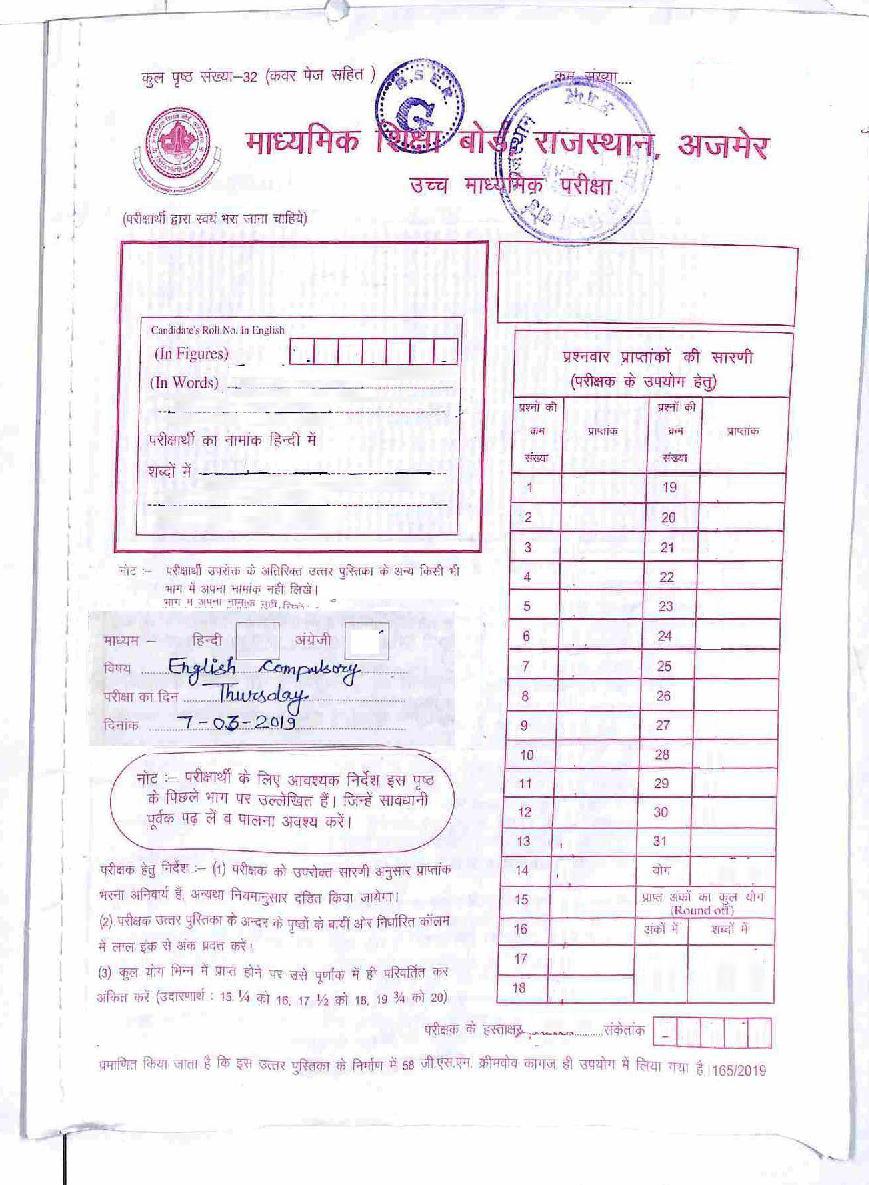 कुल पृष्ठ संख्या-32 (कवर पेज सहित )
क्रम संख्या....
B.S.E.R.
G
माध्यमिक शिक्षा बोर्ड राजस्थान, अजमेर
उच्च माध्यमिक परीक्षा
(परीक्षार्थी द्वारा स्वयं भरा जाना चाहिये)
Candidate's Roll No. in English
(In Figures)
(In Words)
परीक्षार्थी का नामांक हिन्दी में
शब्दों में
नोट :- परीक्षार्थी उपरोक्त के अतिरिक्त उत्तर पुस्तिका के अन्य किसी भी
भाग में अपना नामांक नहीं लिखें।
माध्यम - हिन्दी अंग्रेजी
विषय English Compulsory
परीक्षा का दिन Thursday
दिनांक 7-03-2019
नोट :- परीक्षार्थी के लिए आवश्यक निर्देश इस पृष्ठ
के पिछले भाग पर उल्लेखित हैं। जिन्हें सावधानी
पूर्वक पढ़ लें व पालना अवश्य करें।
परीक्षक हेतु निर्देश :- (1) परीक्षक को उपरोक्त सारणी अनुसार प्राप्तांक
भरना अनिवार्य है, अन्यथा नियमानुसार दंडित किया जायेगा।
(2) परीक्षक उत्तर पुस्तिका के अन्दर के पृष्ठों के बायीं ओर निर्धारित कॉलम
में लाल इंक से अंक प्रदत्त करें।
(3) कुल योग भिन्न में प्राप्त होने पर उसे पूर्णांक में ही परिवर्तित कर
अंकित करें (उदाहरणार्थ : 15 ¼ को 16, 17 ½ को 18, 19 ¾ को 20)
प्रश्नवार प्राप्तांकों की सारणी
(परीक्षक के उपयोग हेतु)
प्रश्नों की क्रम संख्या प्राप्तांक प्रश्नों की क्रम संख्या प्राप्तांक
1 19
2 20
3 21
4 22
5 23
6 24
7 25
8 26
9 27
10 28
11 29
12 30
13 31
14 योग
15 प्राप्त अंकों का कुल योग
(Round off)
16 अंकों में शब्दों में
17
18
परीक्षक के हस्ताक्षर संकेतांक
प्रमाणित किया जाता है कि इस उत्तर पुस्तिका के निर्माण में 58 जी.एस.एम. क्रीमवोव कागज ही उपयोग में लिया गया है।165/2019